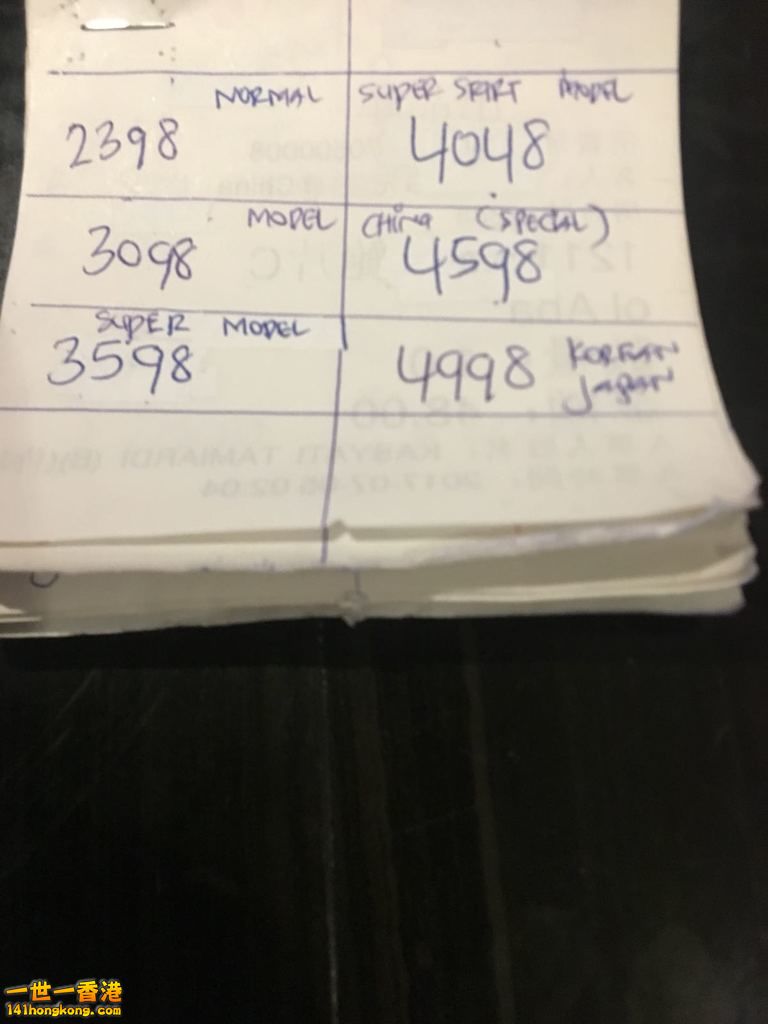 NORMAL
2398
SUPER SPIRT MODEL
4048
MODEL
3098
CHINA (SPECIAL)
4598
SUPER MODEL
3598
4998 KOREAN
JAPAN
一世一香港
141hongkong.com